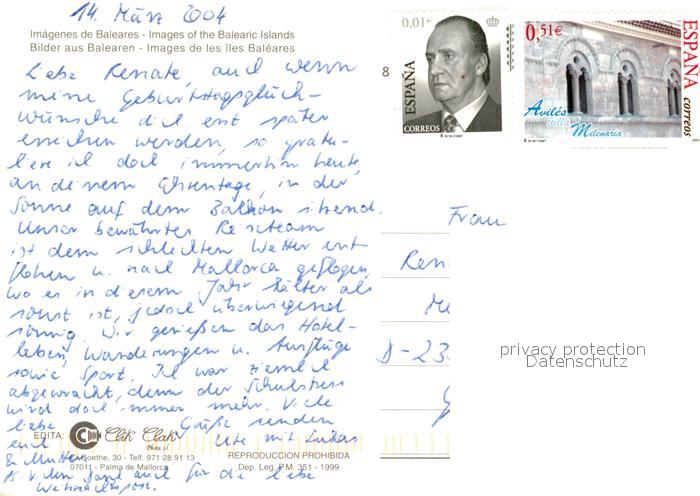 14. März 2004
Imágenes de Baleares - Images of the Balearic Islands
Bilder aus Balearen - Images de les îles Baléares
Liebe Renate, auch wenn
meine Geburtstagsglück-
wünsche dich erst später
erreichen werden, so gratu-
liere ich doch immerhin heute,
an deinem Ehrentage, in der
Sonne auf dem Balkon sitzend.
Unser bewährtes Reiseteam
ist dem schlechten Wetter ent-
flohen u. nach Mallorca geflogen,
wo es in diesem Jahr kälter als
sonst ist, jedoch überwiegend
sonnig. Wir genießen das Hotel-
leben, Wanderungen u. Ausflüge
sowie Sport. Ich war ziemlich
abgewrackt, denn der Schulstress
wird doch immer mehr. Viele
liebe Grüße senden
euch Ute mit Lukas
& Mutter
EDITA: Clik Clak
Goethe, 30 - Telf. 971 28 91 13
07011 - Palma de Mallorca
REPRODUCCION PROHIBIDA
Dep. Leg. P.M. 351 - 1999
PS Vielen Dank auch für die liebe
Weihnachtspost.
8
0,01€
ESPAÑA
CORREOS
RCM-FNMT
0,51€
ESPAÑA
correos
Avilés
villa
Milenaria
RCM-FNMT
Frau
Ren
D-23
privacy protection
Datenschutz